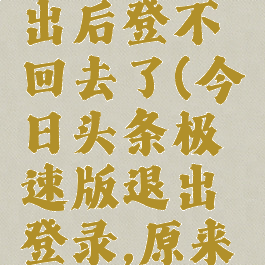 出后登不
回去了(今
日头条极
速版退出
登录,原来